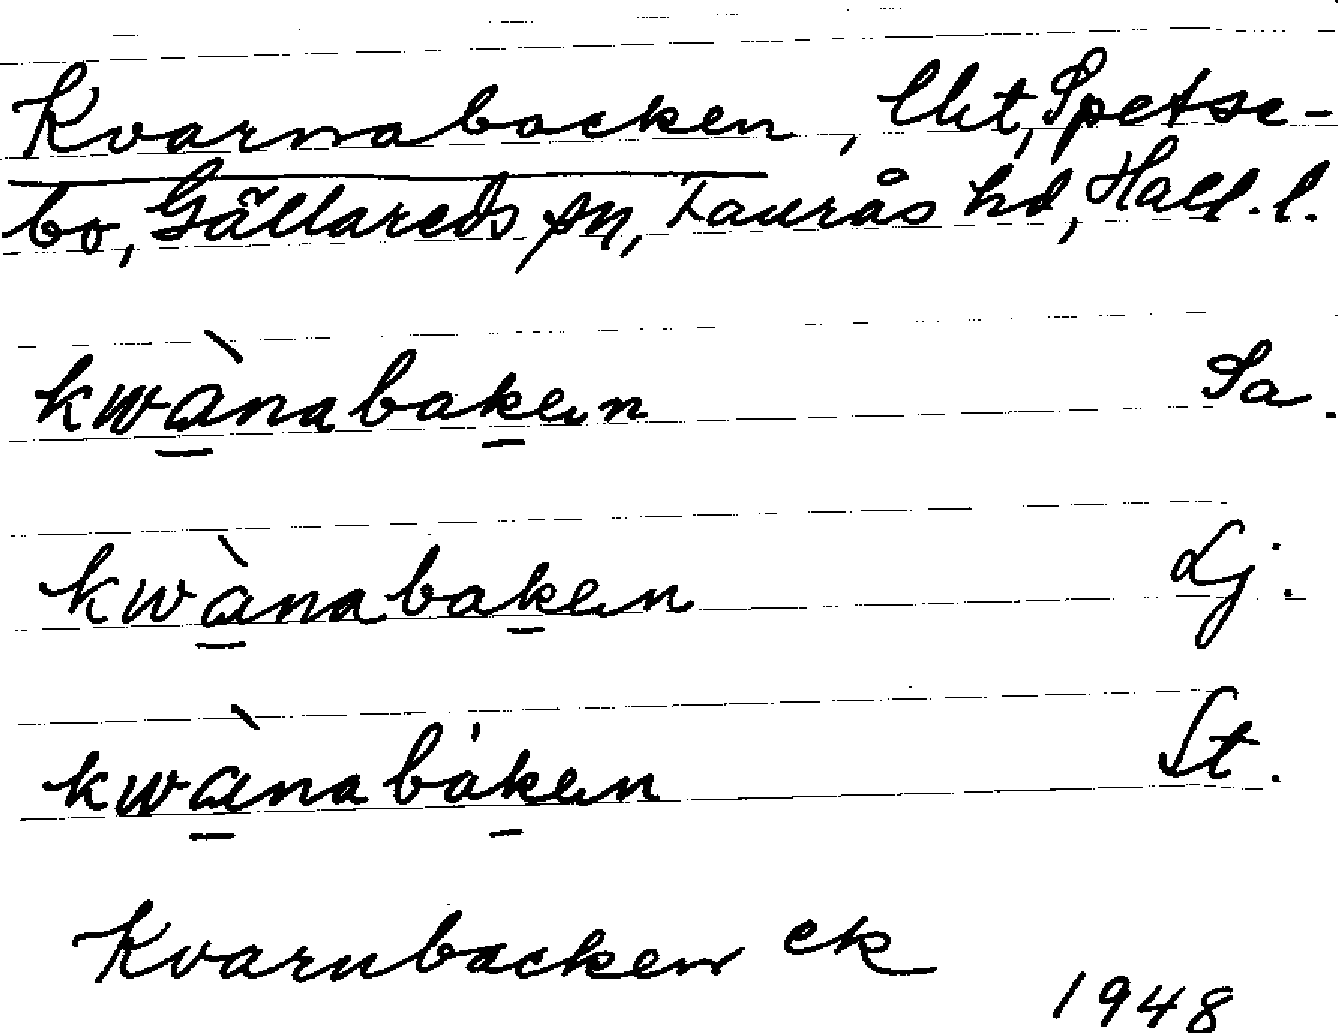 Kvarnabacken, lht, Spetse-
bo, Gällareds sn, Faurås hd, Hall. l.
kwànabaken Sa.
kwànabaken Lj.
kwànabàken St.
Kvarnbacken ek
1948